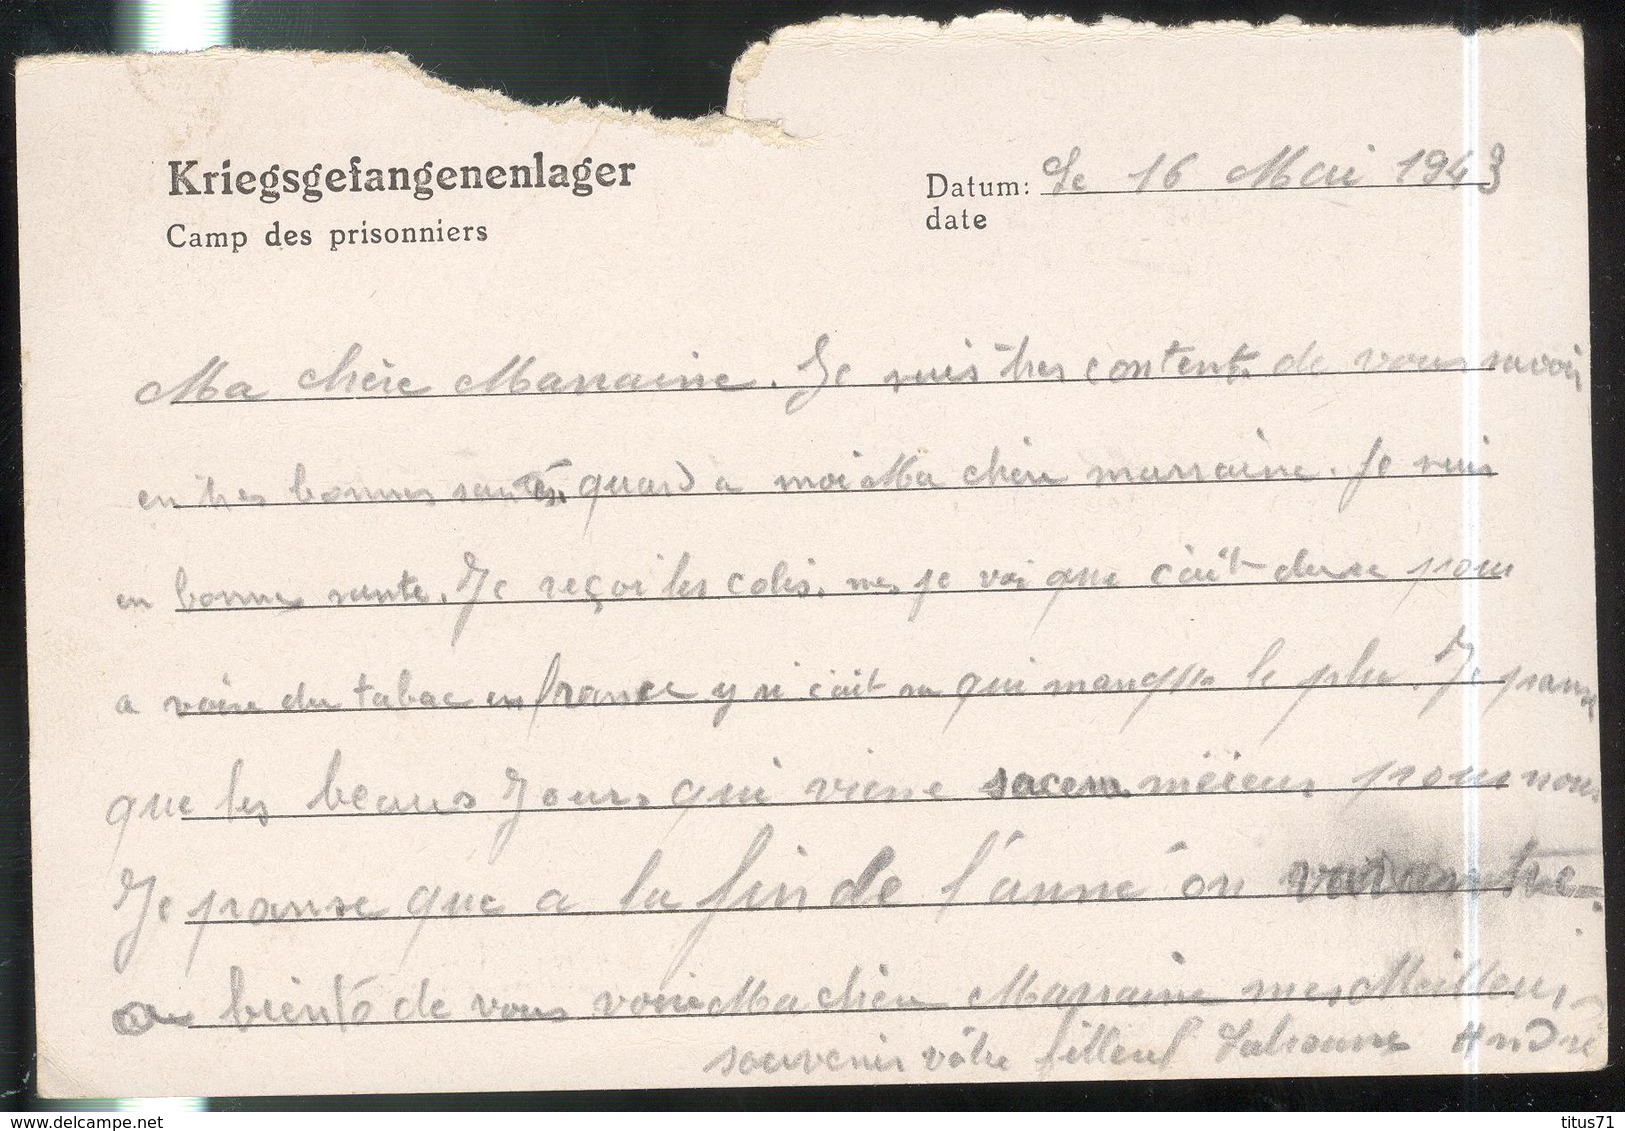 Kriegsgefangenenlager
Camp des prisonniers
Datum: Le 16 Mai 1943
date
Ma chère Marraine. Je suis tres content de vous savoir
en tres bonnes santés quand a moi Ma chère marraine. Je suis
en bonnes sante. Je reçoi les colis. mes je voi que càit dure pour
a voire du tabac en france y si càit sa qui manque le plu. Je panse
que les beaus Jours qui viene seron méieur pour nous
Je panse que a la fin de l'anné on
bientô de vous voire Ma chère Marraine mes Meilleurs
souvenir vôtre filleul André
titus71
delcampe.net